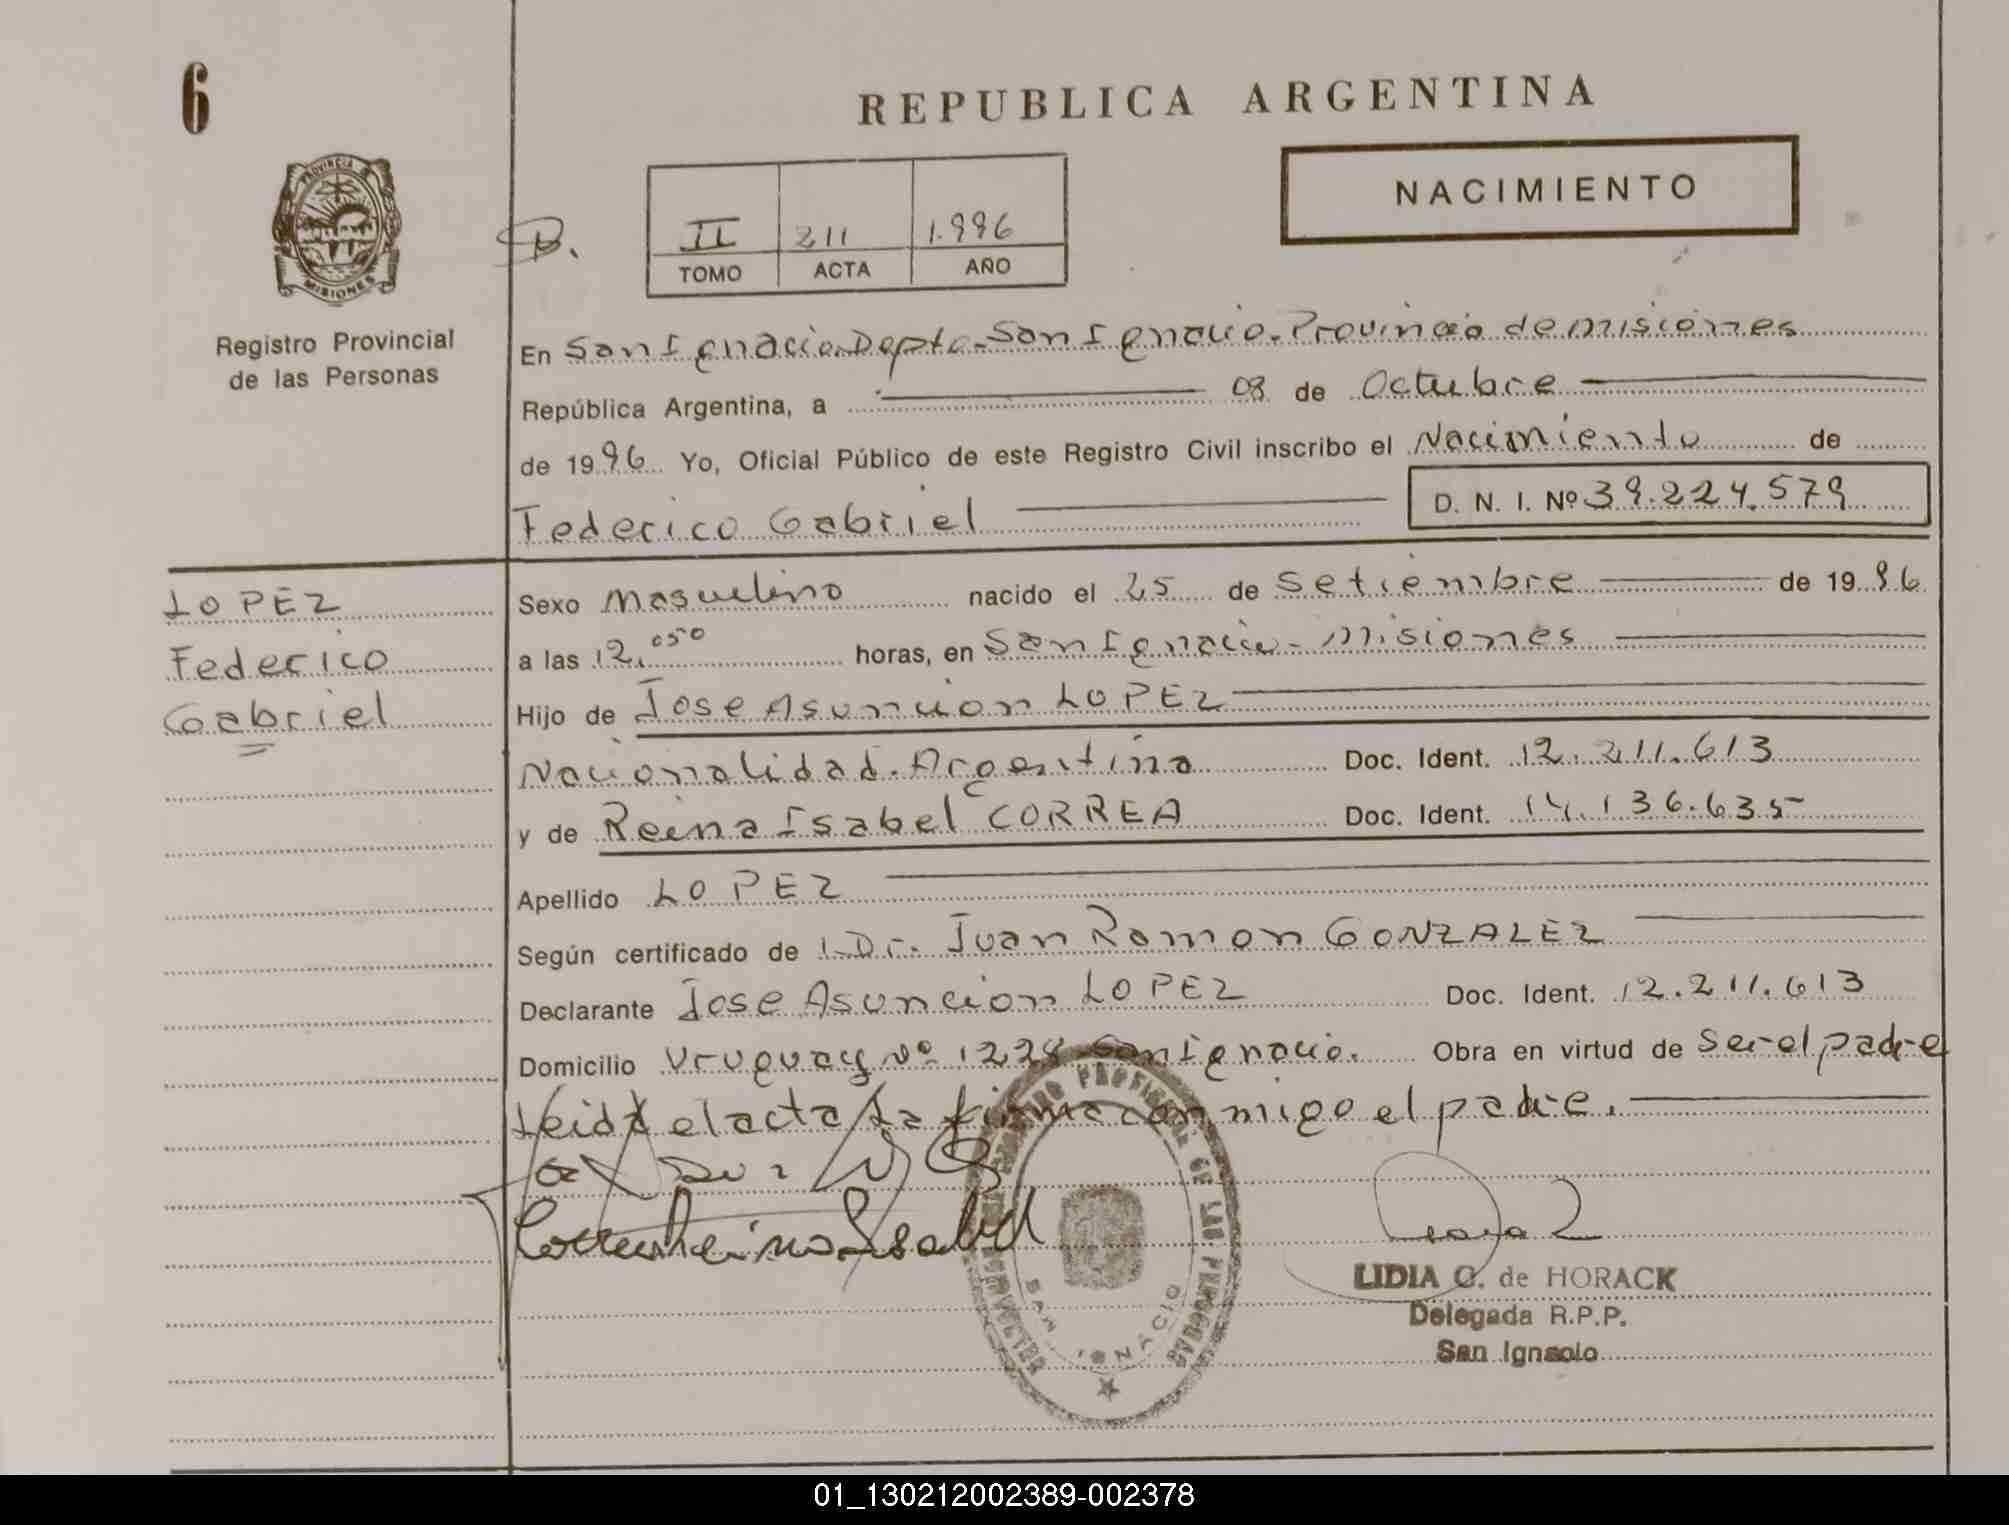 6
REPUBLICA ARGENTINA
NACIMIENTO
PROVINCIA
MISIONES
Registro Provincial
de las Personas
B.
II 211 1.996
TOMO ACTA AÑO
En San Ignacio. Depto. San Ignacio. Provincia de Misiones
República Argentina, a 08 de Octubre
de 1996 Yo, Oficial Público de este Registro Civil inscribo el Nacimiento de
Federico Gabriel D. N. I. Nº 39.224.579
LOPEZ
Federico
Gabriel
Sexo Masculino nacido el 25 de Setiembre de 1996
a las 12,050 horas, en San Ignacio - Misiones
Hijo de Jose Asuncion LOPEZ
Nacionalidad. Argentina Doc. Ident. 12.211.613
y de Reina Isabel CORREA Doc. Ident. 14.136.635
Apellido LOPEZ
Según certificado de Dr. Juan Ramon GONZALEZ
Declarante Jose Asuncion LOPEZ Doc. Ident. 12.211.613
Domicilio Uruguay Nº 1228 San Ignacio. Obra en virtud de ser el padre
Leida el acta la firma conmigo el padre.
Correa Reina Isabel
PROVINCIAL DE LAS PERSONAS
SAN IGNACIO
LIDIA G. de HORACK
Delegada R.P.P.
San Ignacio
01_130212002389-002378